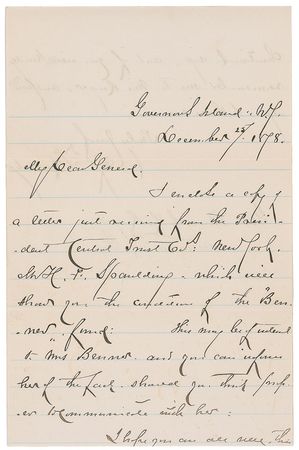 Governors Island: N.Y.
December 12th 1878.
My Dear General.
I enclose a copy of
a letter just received from the Presi-
dent Central Trust Co: New York,
Mr H. F. Spaulding - which will
show you the condition of the "Ben-
ner" fund: This may be of interest
to Mrs Benner and you can inform
her of the fact, should you think prop-
er to communicate with her:
I hope you are all well. This